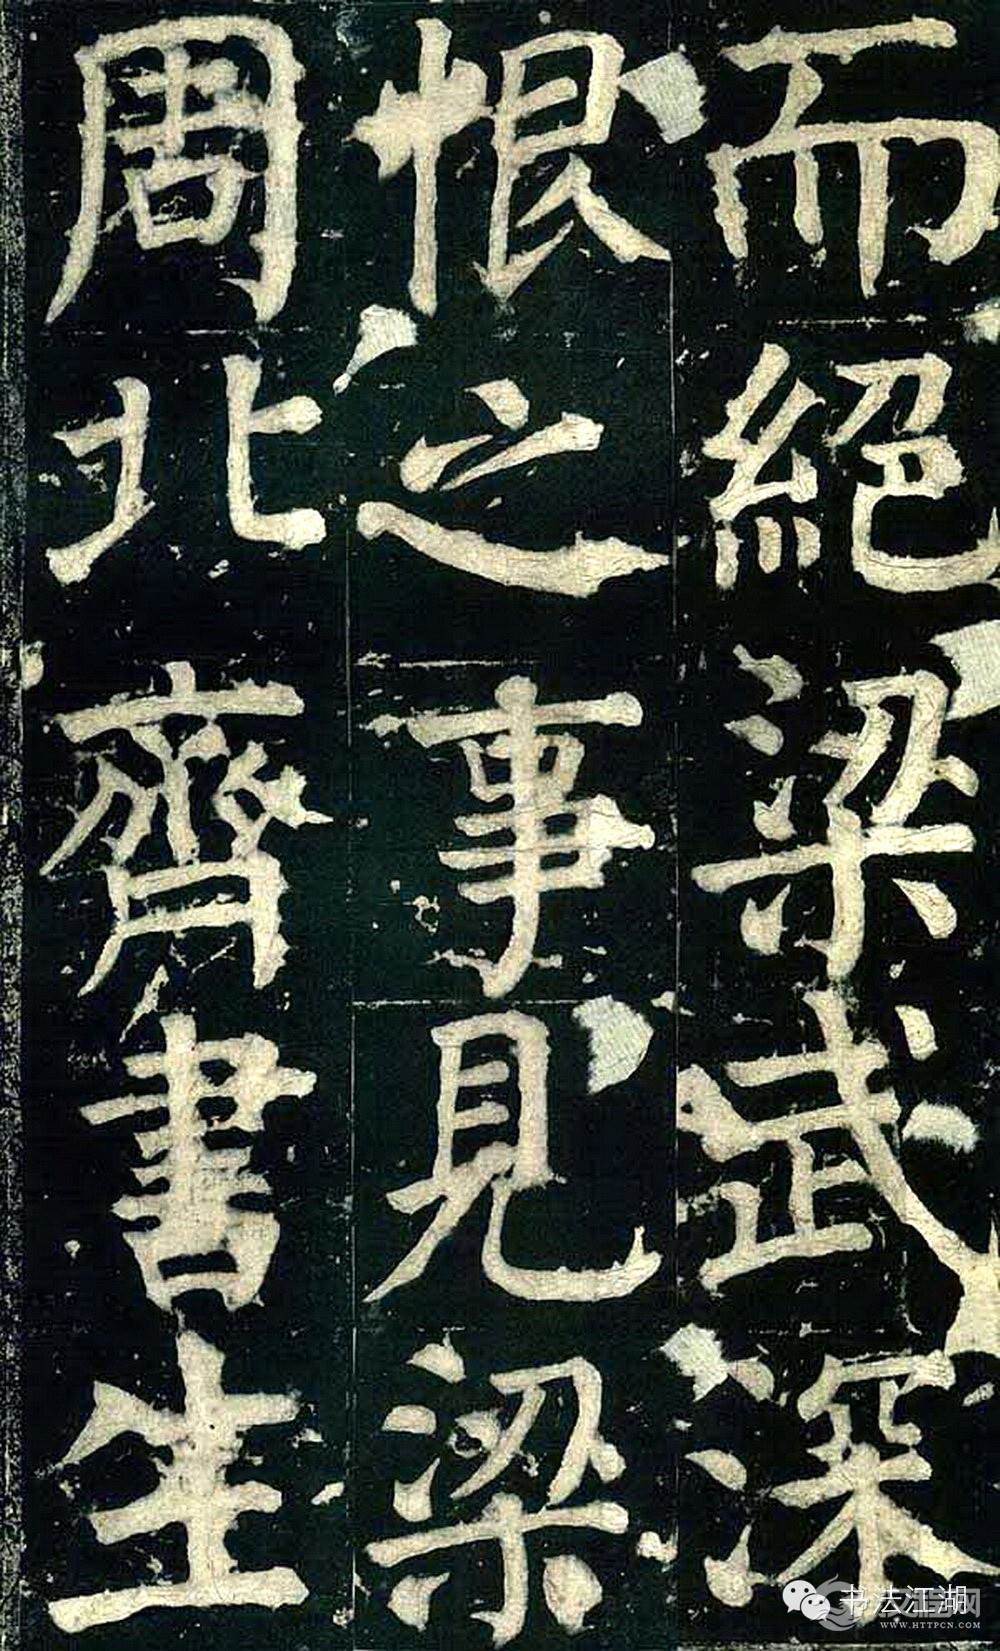 而絕梁武深
恨之事見梁
周北齊書生
书法江湖
WWW.HTTPCN.COM